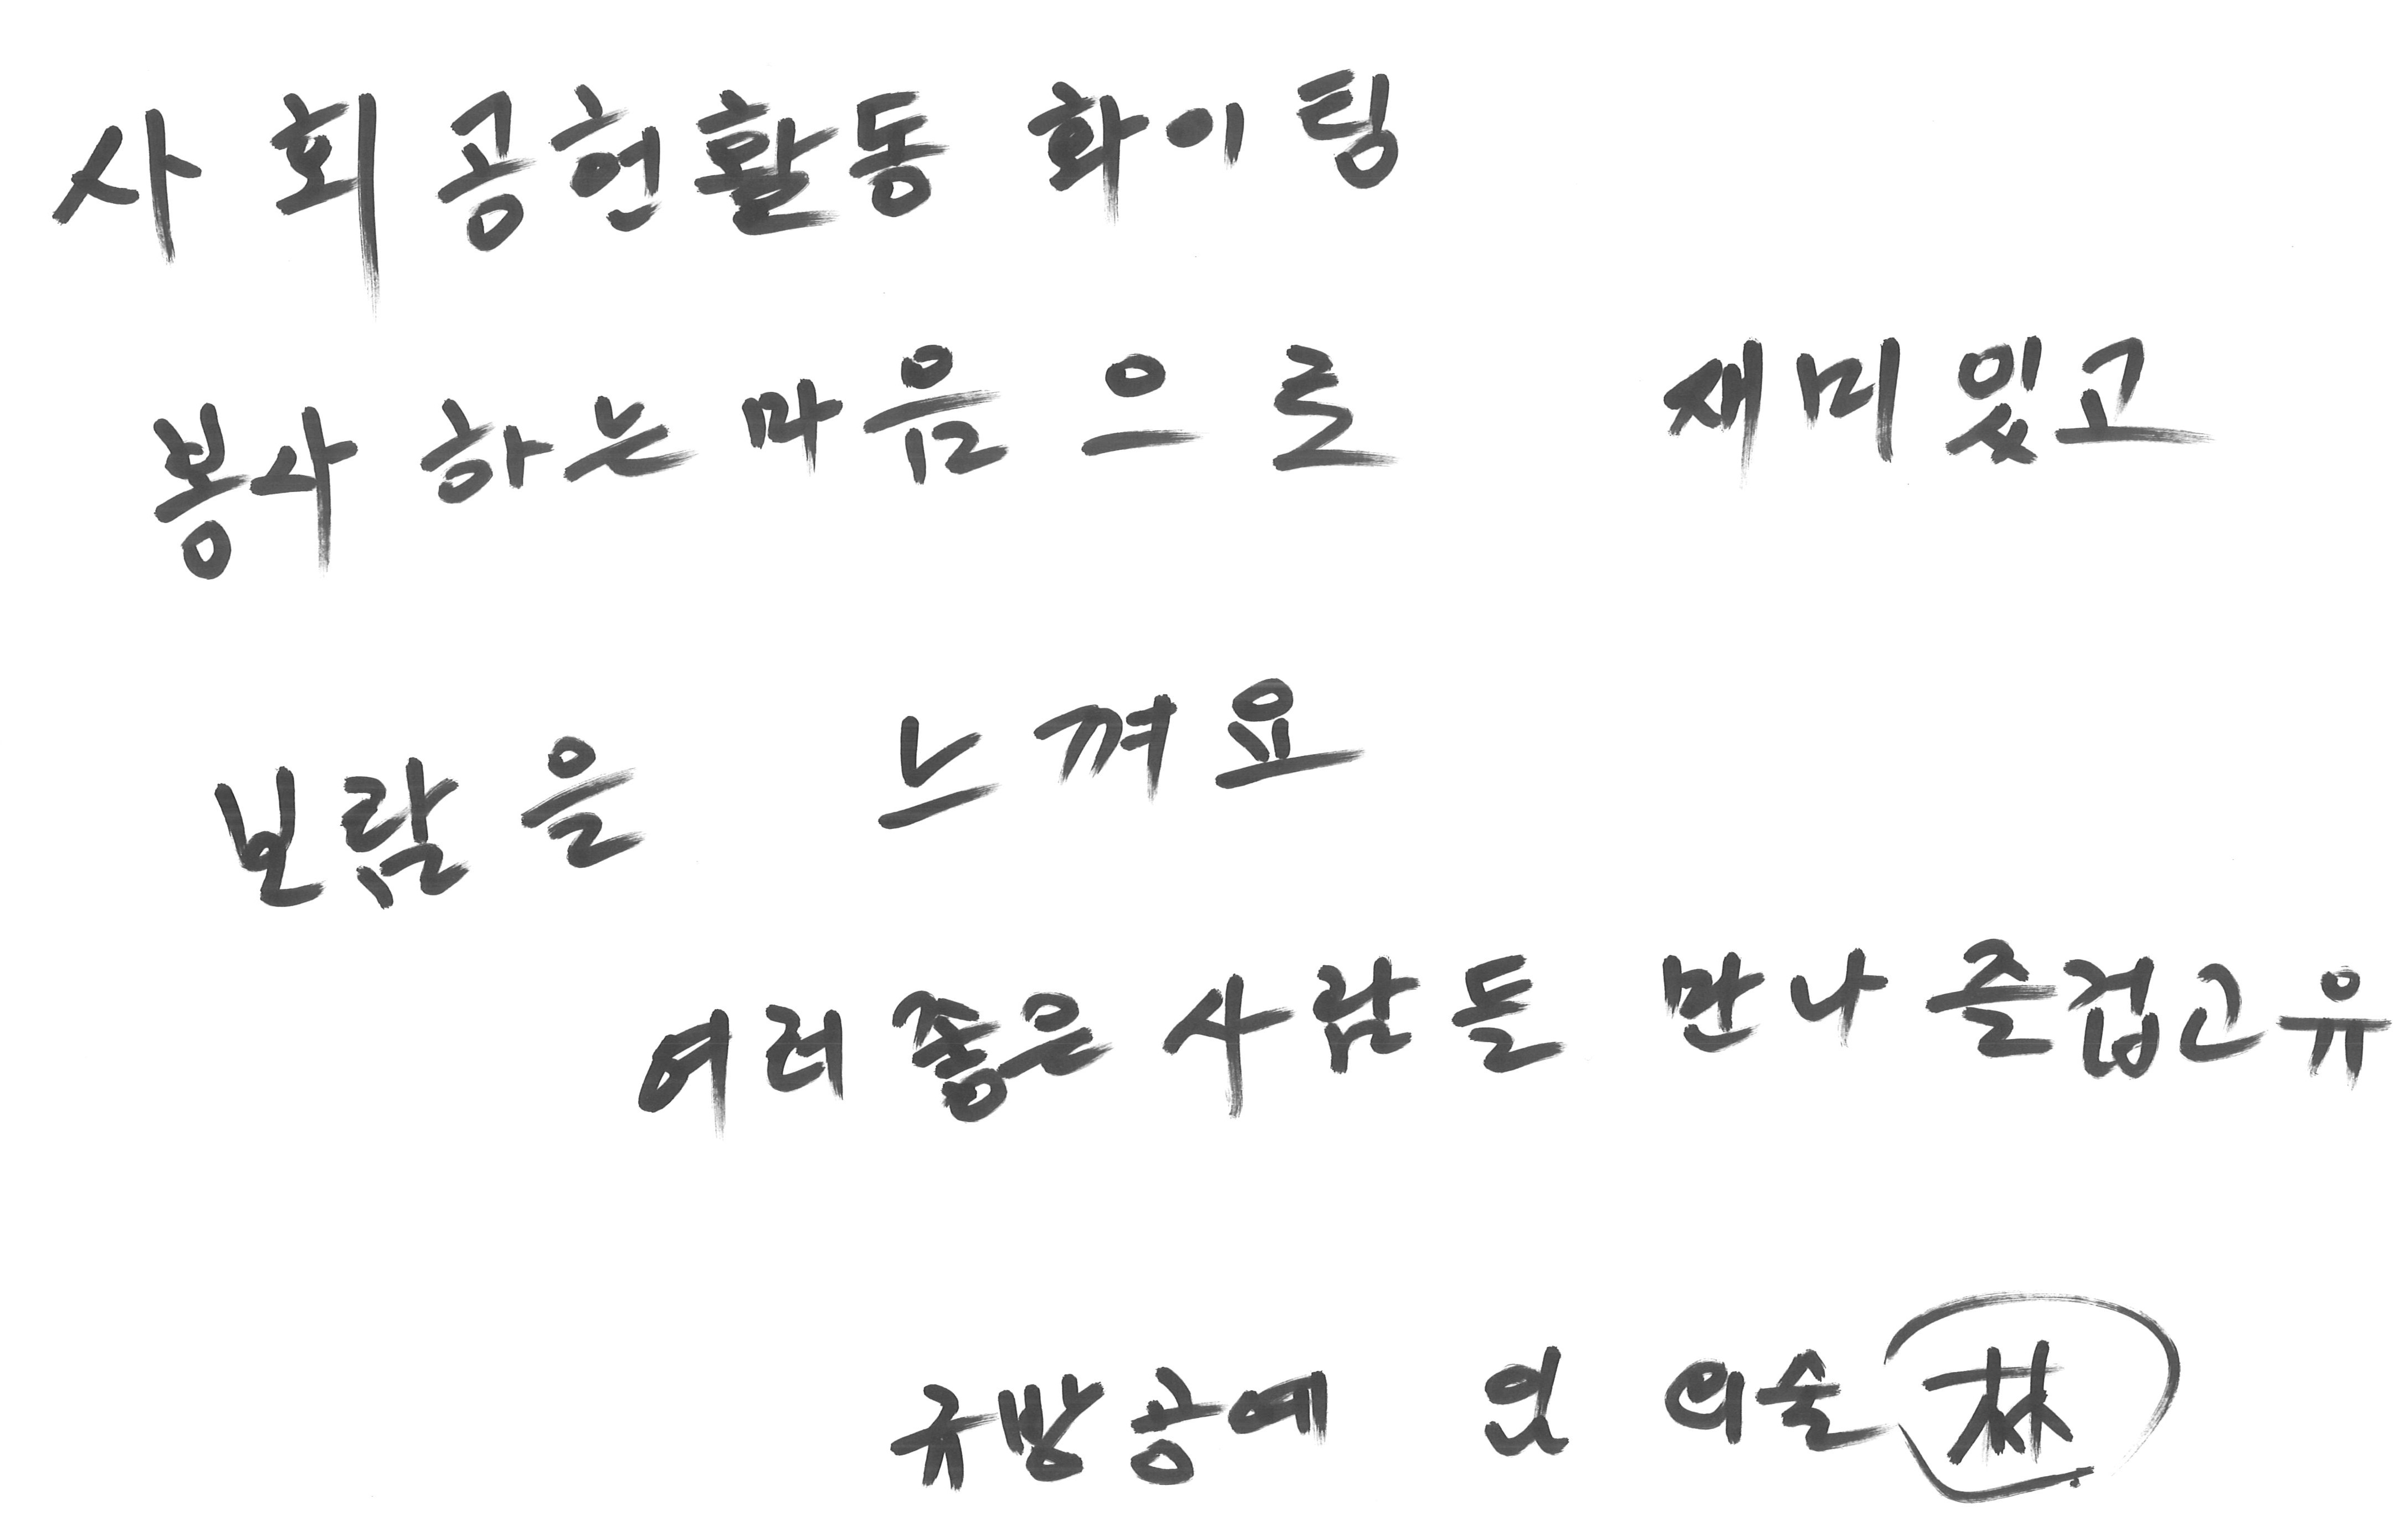 사회공헌활동 화이팅
봉사하는마음으로 재미있고
보람을 느껴요
여러좋은사람들 만나 즐겁고유
규방공예 인 의순 林